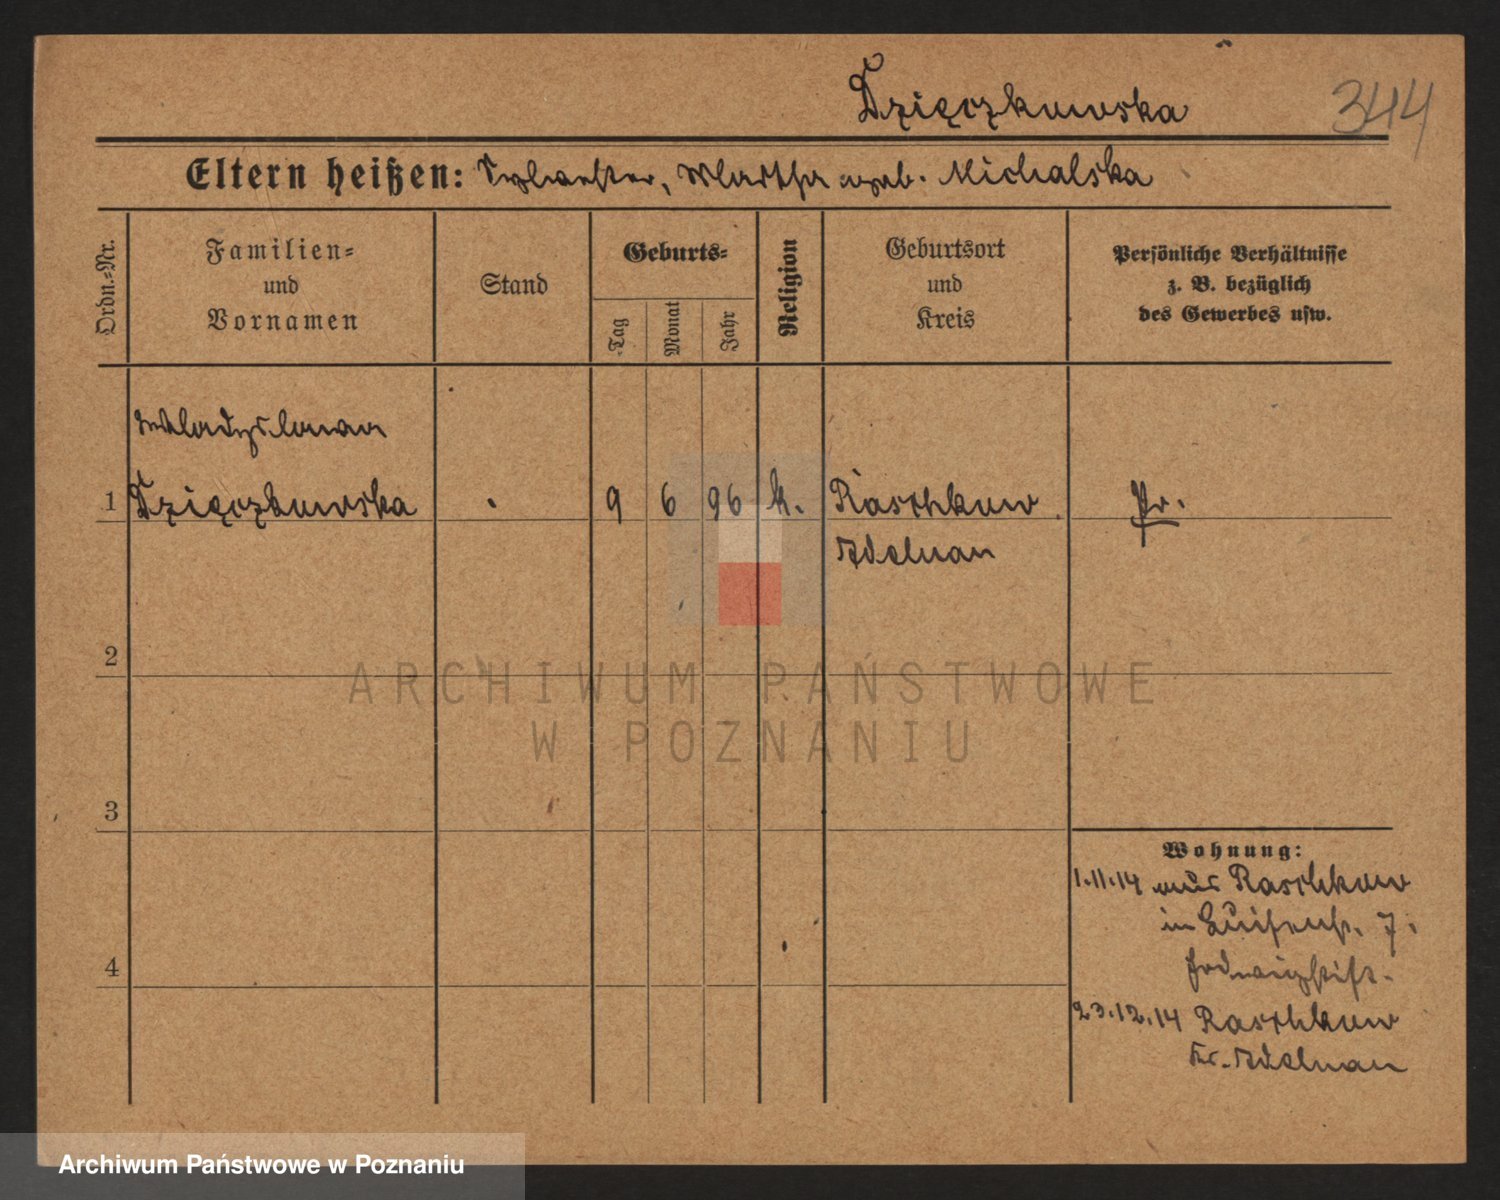 Dzięczkowska
344
Eltern heißen: Sylvester, Martha geb. Michalska
Ordn.-Nr.
Familien-
und
Vornamen
Stand
Geburts-
Tag
Monat
Jahr
Religion
Geburtsort
und
Kreis
Persönliche Verhältnisse
z. B. bezüglich
des Gewerbes usw.
Wladyslawa
1 Dzięczkowska 9 6 96 k. Raschkow Pr.
Adelnau
2
ARCHIWUM PAŃSTWOWE
W POZNANIU
3
Wohnung:
1.11.14 aus Raschkow
in Luisenst. 7.
4
23.12.14 Raschkow
Kr. Adelnau
Archiwum Państwowe w Poznaniu